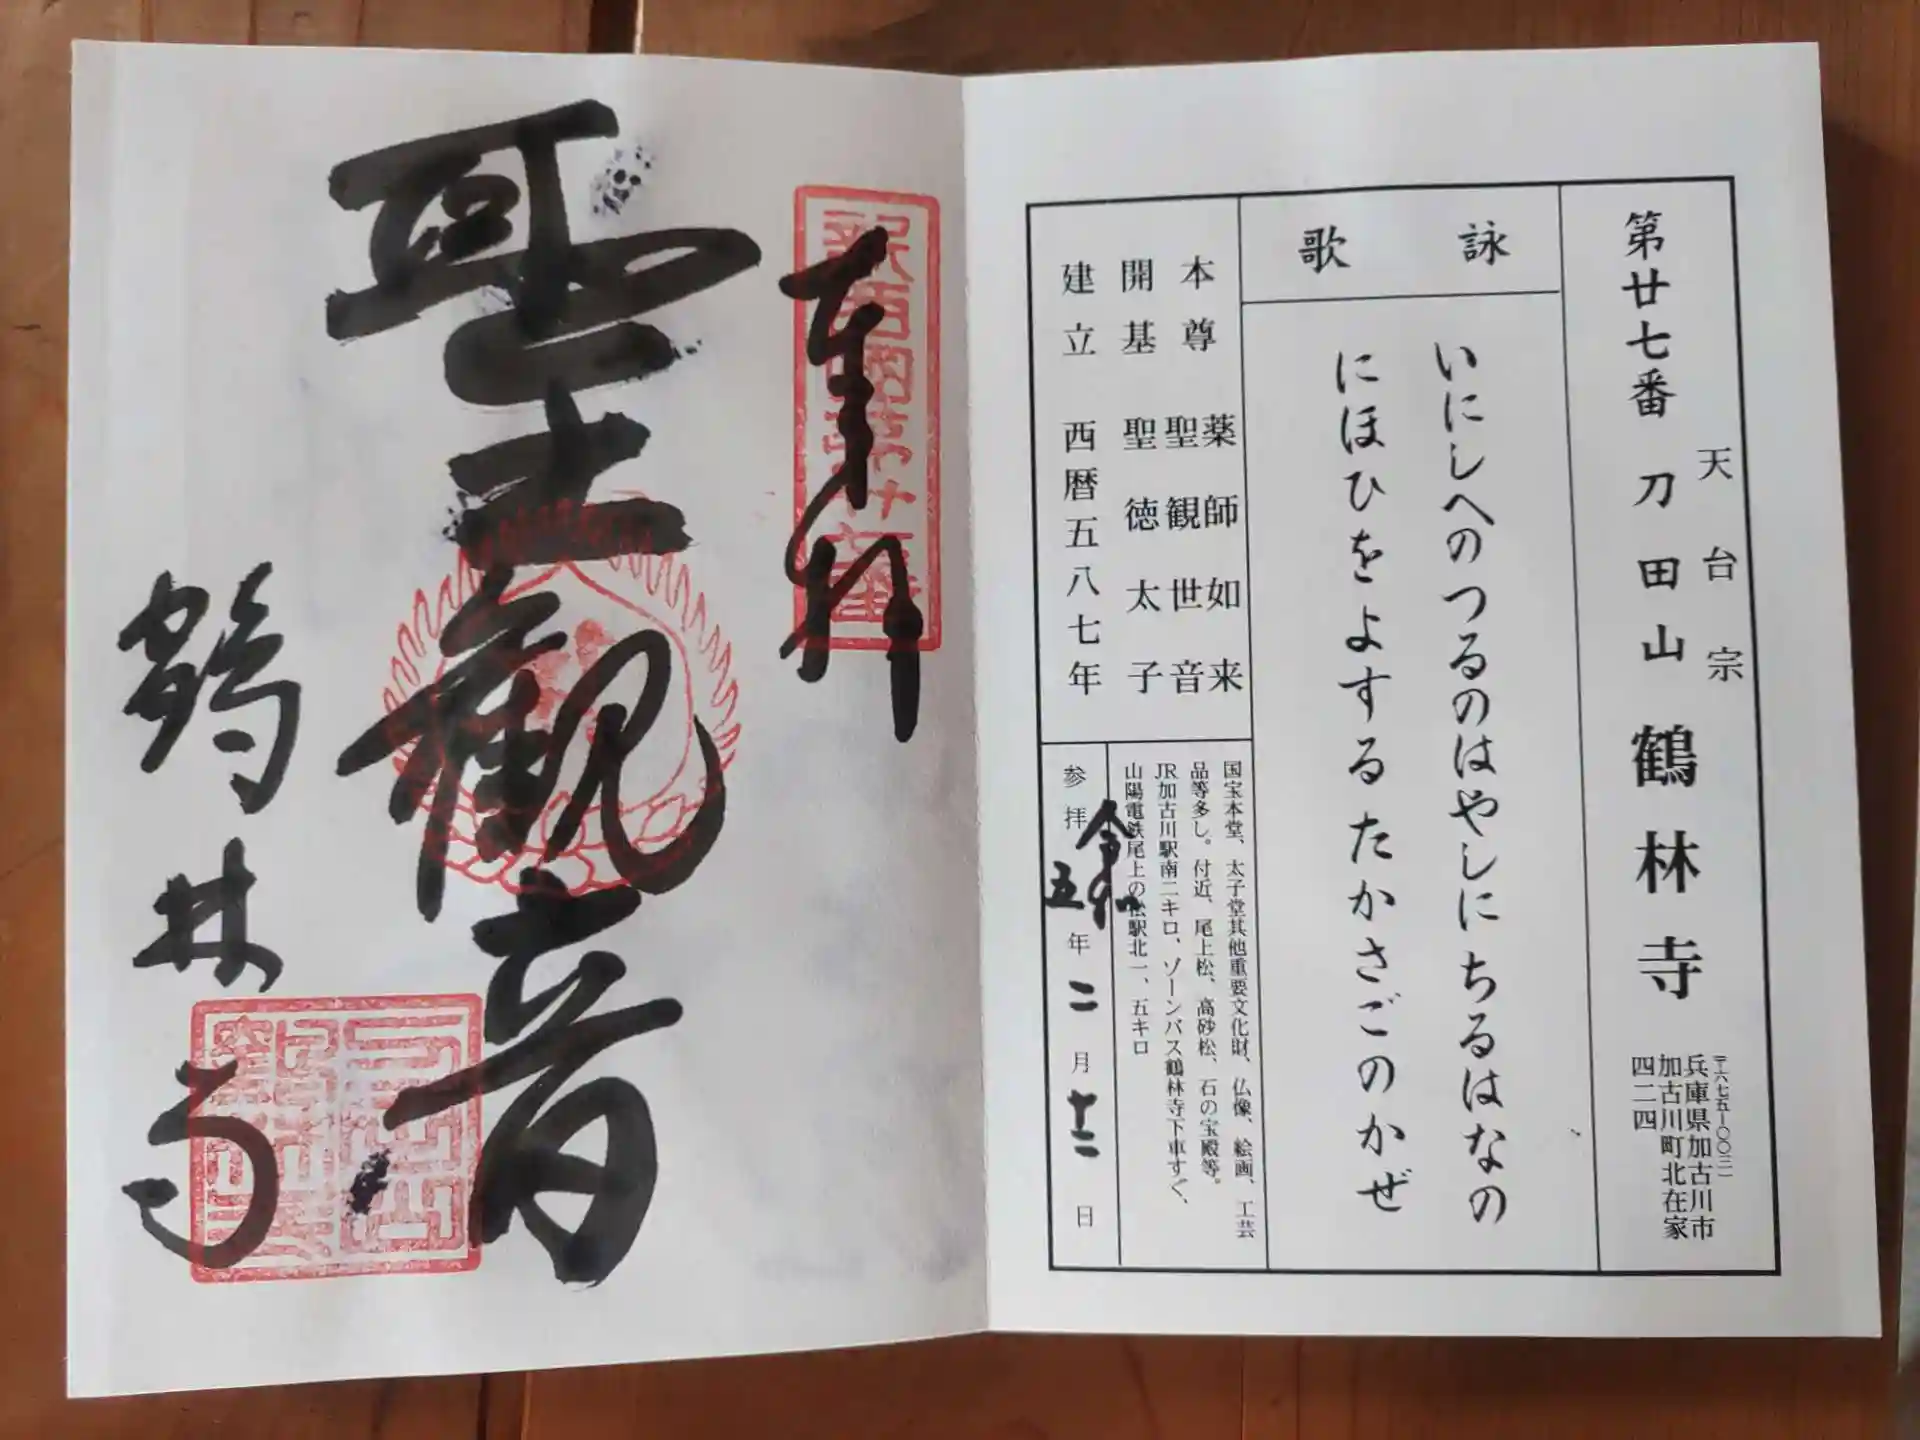 天台宗
第廿七番 刀田山 鶴林寺
〒六七五-〇〇三一
兵庫県加古川市
加古川町北在家
四二四
詠歌
いにしへのつるのはやしにちるはなの
にほひをよするたかさごのかぜ
本尊 薬師如来
聖観世音
開基 聖徳太子
建立 西暦五八七年
国宝本堂、太子堂其他重要文化財、仏像、絵画、工芸
品等多し。付近、尾上松、高砂松、石の宝殿等。
JR加古川駅南二キロ、ゾーンバス鶴林寺下車すぐ、
山陽電鉄尾上の松駅北一、五キロ
参拝 令和五年二月十二日
奉拝
聖観音
鶴林寺